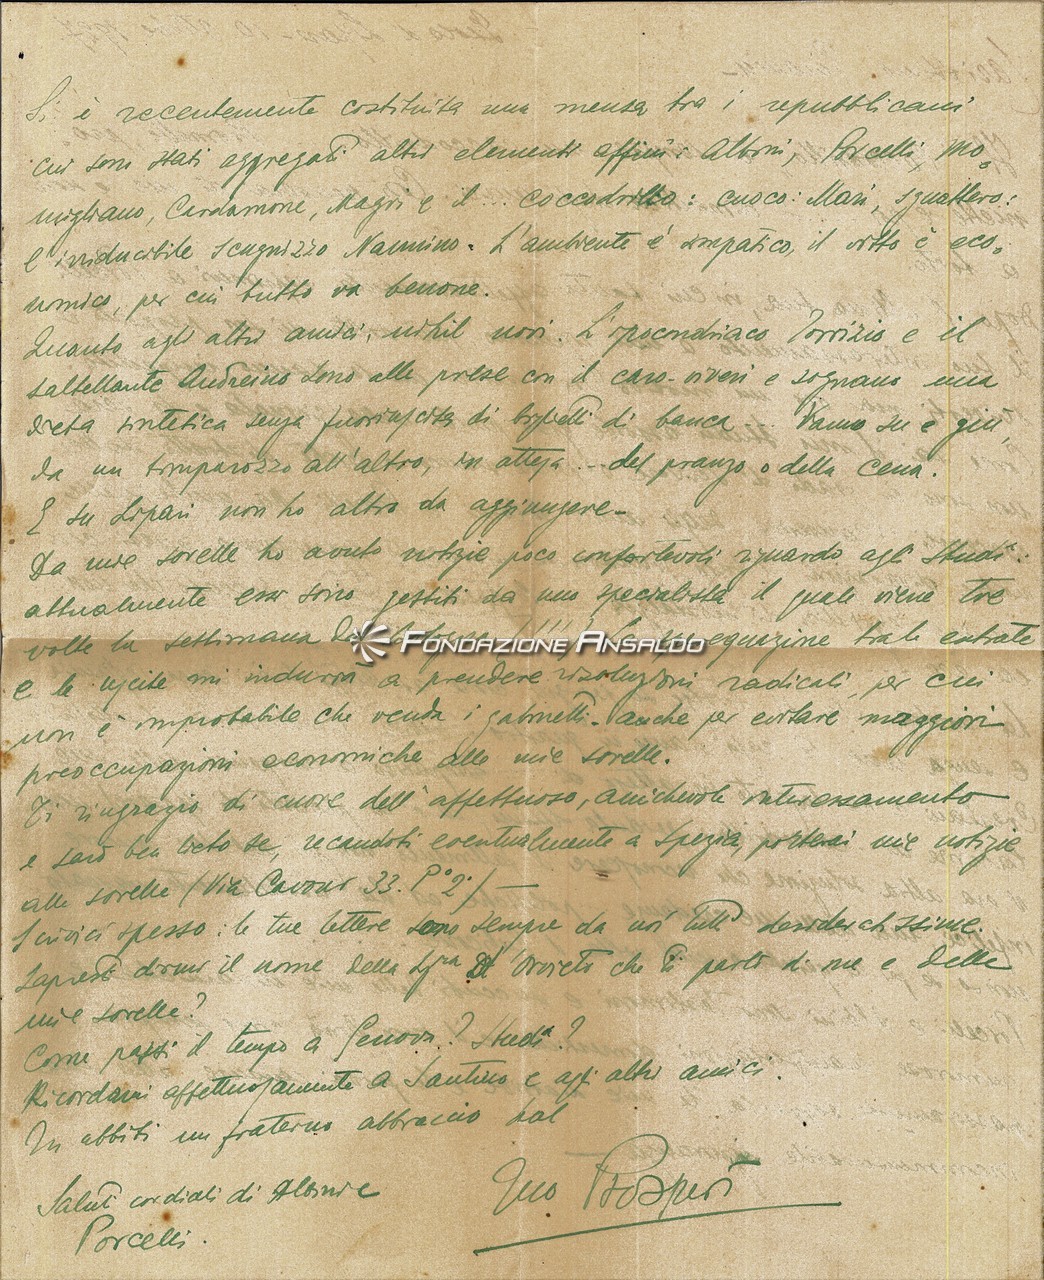 Si è recentemente costituita una mensa tra i repubblicani
cui sono stati aggregati altri elementi affini: Albini, Porcelli, Mo=
migliano, Cardamone, Magri e il... coccodrillo: cuoco: Mari, sguattero:
l'irriducibile scugnizzo Nannino. L'ambiente è simpatico, il vitto è eco=
nomico, per cui tutto va benone.
Quanto agli altri amici, nihil novi. L'ipocondriaco Torrizio e il
saltellante Andreino sono alle prese con il caro-viveri e sognano una
dieta sintetica senza fuoriuscita di biglietti di banca... Vanno su e giù,
da un capo all'altro, in attesa... del pranzo o della cena.
E su Lipari non ho altro da aggiungere.
Da mie sorelle ho avuto notizie poco confortevoli riguardo agli studi:
attualmente essi sono gestiti da uno specialista il quale viene tre
volte la settimana da
FONDAZIONE ANSALDO
sperequazione tra le entrate
e le uscite mi indurrà a prendere risoluzioni radicali, per cui
non è improbabile che venda i gabinetti. Anche per evitare maggiori
preoccupazioni economiche alle mie sorelle.
Ti ringrazio di cuore dell'affettuoso, amichevole interessamento
e sarò ben lieto se, recandoti eventualmente a Spezia, porterai mie notizie
alle sorelle (Via Cavour 33. P° 2°) —
Scrivici spesso: le tue lettere sono sempre da noi tutti desideratissime.
Sapresti dirmi il nome della Sig.ra D'Orvieto che ti parlò di me e delle
mie sorelle?
Come passi il tempo a Genova? Studi?
Ricordami affettuosamente a Santino e agli altri amici.
Tu abbiti un fraterno abbraccio dal
Tuo Prosperi
Saluti cordiali di Albini e
Porcelli.